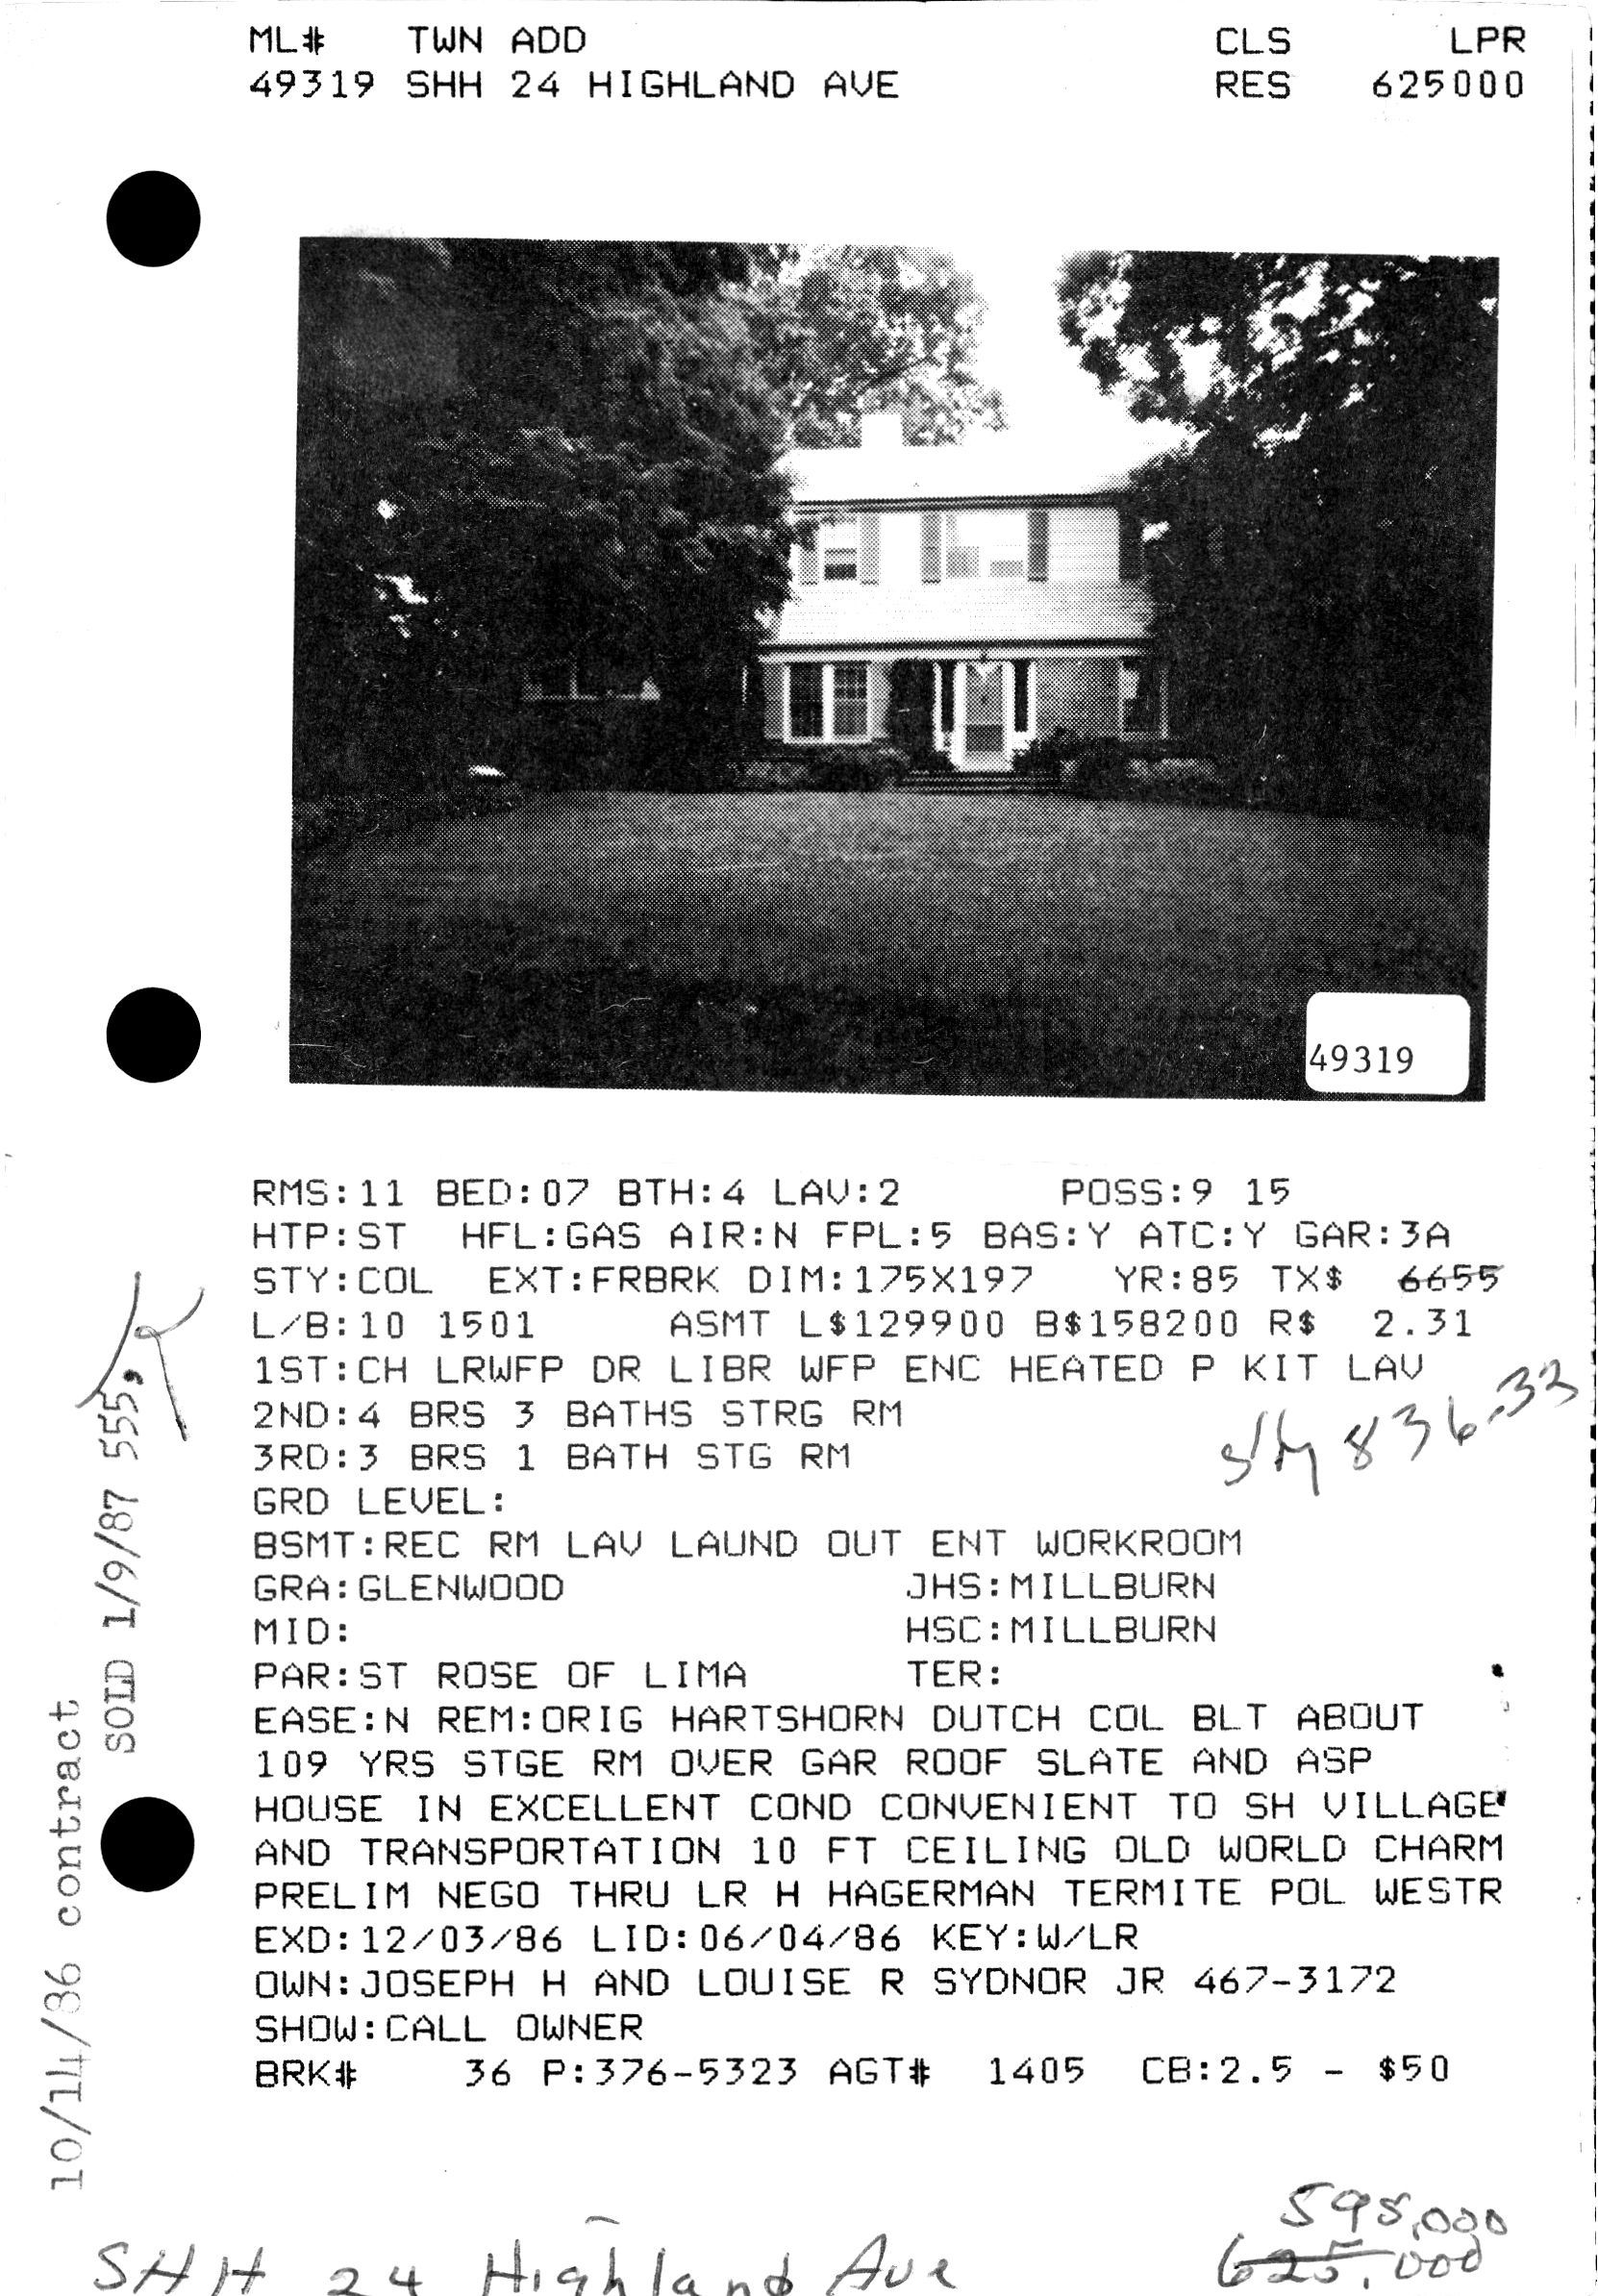 ML# TWN ADD CLS LPR
49319 SHH 24 HIGHLAND AVE RES 625000
49319
RMS:11 BED:07 BTH:4 LAV:2 POSS:9 15
HTP:ST HFL:GAS AIR:N FPL:5 BAS:Y ATC:Y GAR:3A
STY:COL EXT:FRBRK DIM:175X197 YR:85 TX$ 6655
L/B:10 1501 ASMT L$129900 B$158200 R$ 2.31
1ST:CH LRWFP DR LIBR WFP ENC HEATED P KIT LAV
2ND:4 BRS 3 BATHS STRG RM
3RD:3 BRS 1 BATH STG RM
836.33
GRD LEVEL:
BSMT:REC RM LAV LAUND OUT ENT WORKROOM
GRA:GLENWOOD JHS:MILLBURN
MID: HSC:MILLBURN
PAR:ST ROSE OF LIMA TER:
EASE:N REM:ORIG HARTSHORN DUTCH COL BLT ABOUT
109 YRS STGE RM OVER GAR ROOF SLATE AND ASP
HOUSE IN EXCELLENT COND CONVENIENT TO SH VILLAGE
AND TRANSPORTATION 10 FT CEILING OLD WORLD CHARM
PRELIM NEGO THRU LR H HAGERMAN TERMITE POL WESTR
EXD:12/03/86 LID:06/04/86 KEY:W/LR
OWN:JOSEPH H AND LOUISE R SYDNOR JR 467-3172
SHOW:CALL OWNER
BRK# 36 P:376-5323 AGT# 1405 CB:2.5 - $50
10/14/86 contract
SOLD 1/9/87 555, K
595,000
625,000
SHH 24 Highland Ave